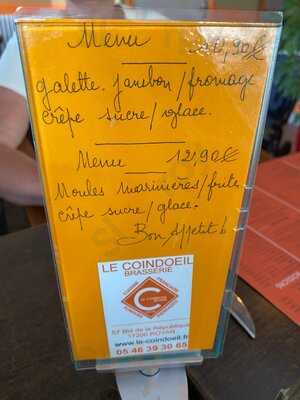 Menu 12,90€
galette jambon/fromage
crêpe sucre/glace.
Menu 12,90€
Moules marinières/frite
crêpe sucre/glace.
Bon Appetit !
LE COINDOEIL
BRASSERIE
57 Bld de la République
17200 ROYAN
www.le-coindoeil.fr
05 46 39 30 65